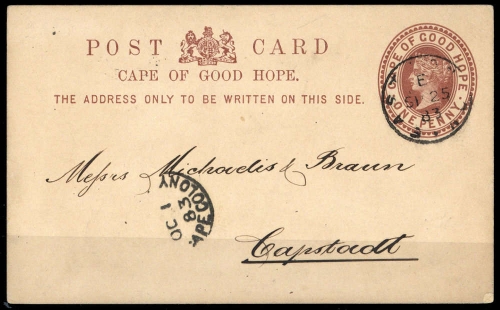 POST CARD
CAPE OF GOOD HOPE.
THE ADDRESS ONLY TO BE WRITTEN ON THIS SIDE.
CAPE OF GOOD HOPE
ONE PENNY
E
25
83
Messrs Michaelis & Braun
Capstadt
APE COLONY
OC 1
83